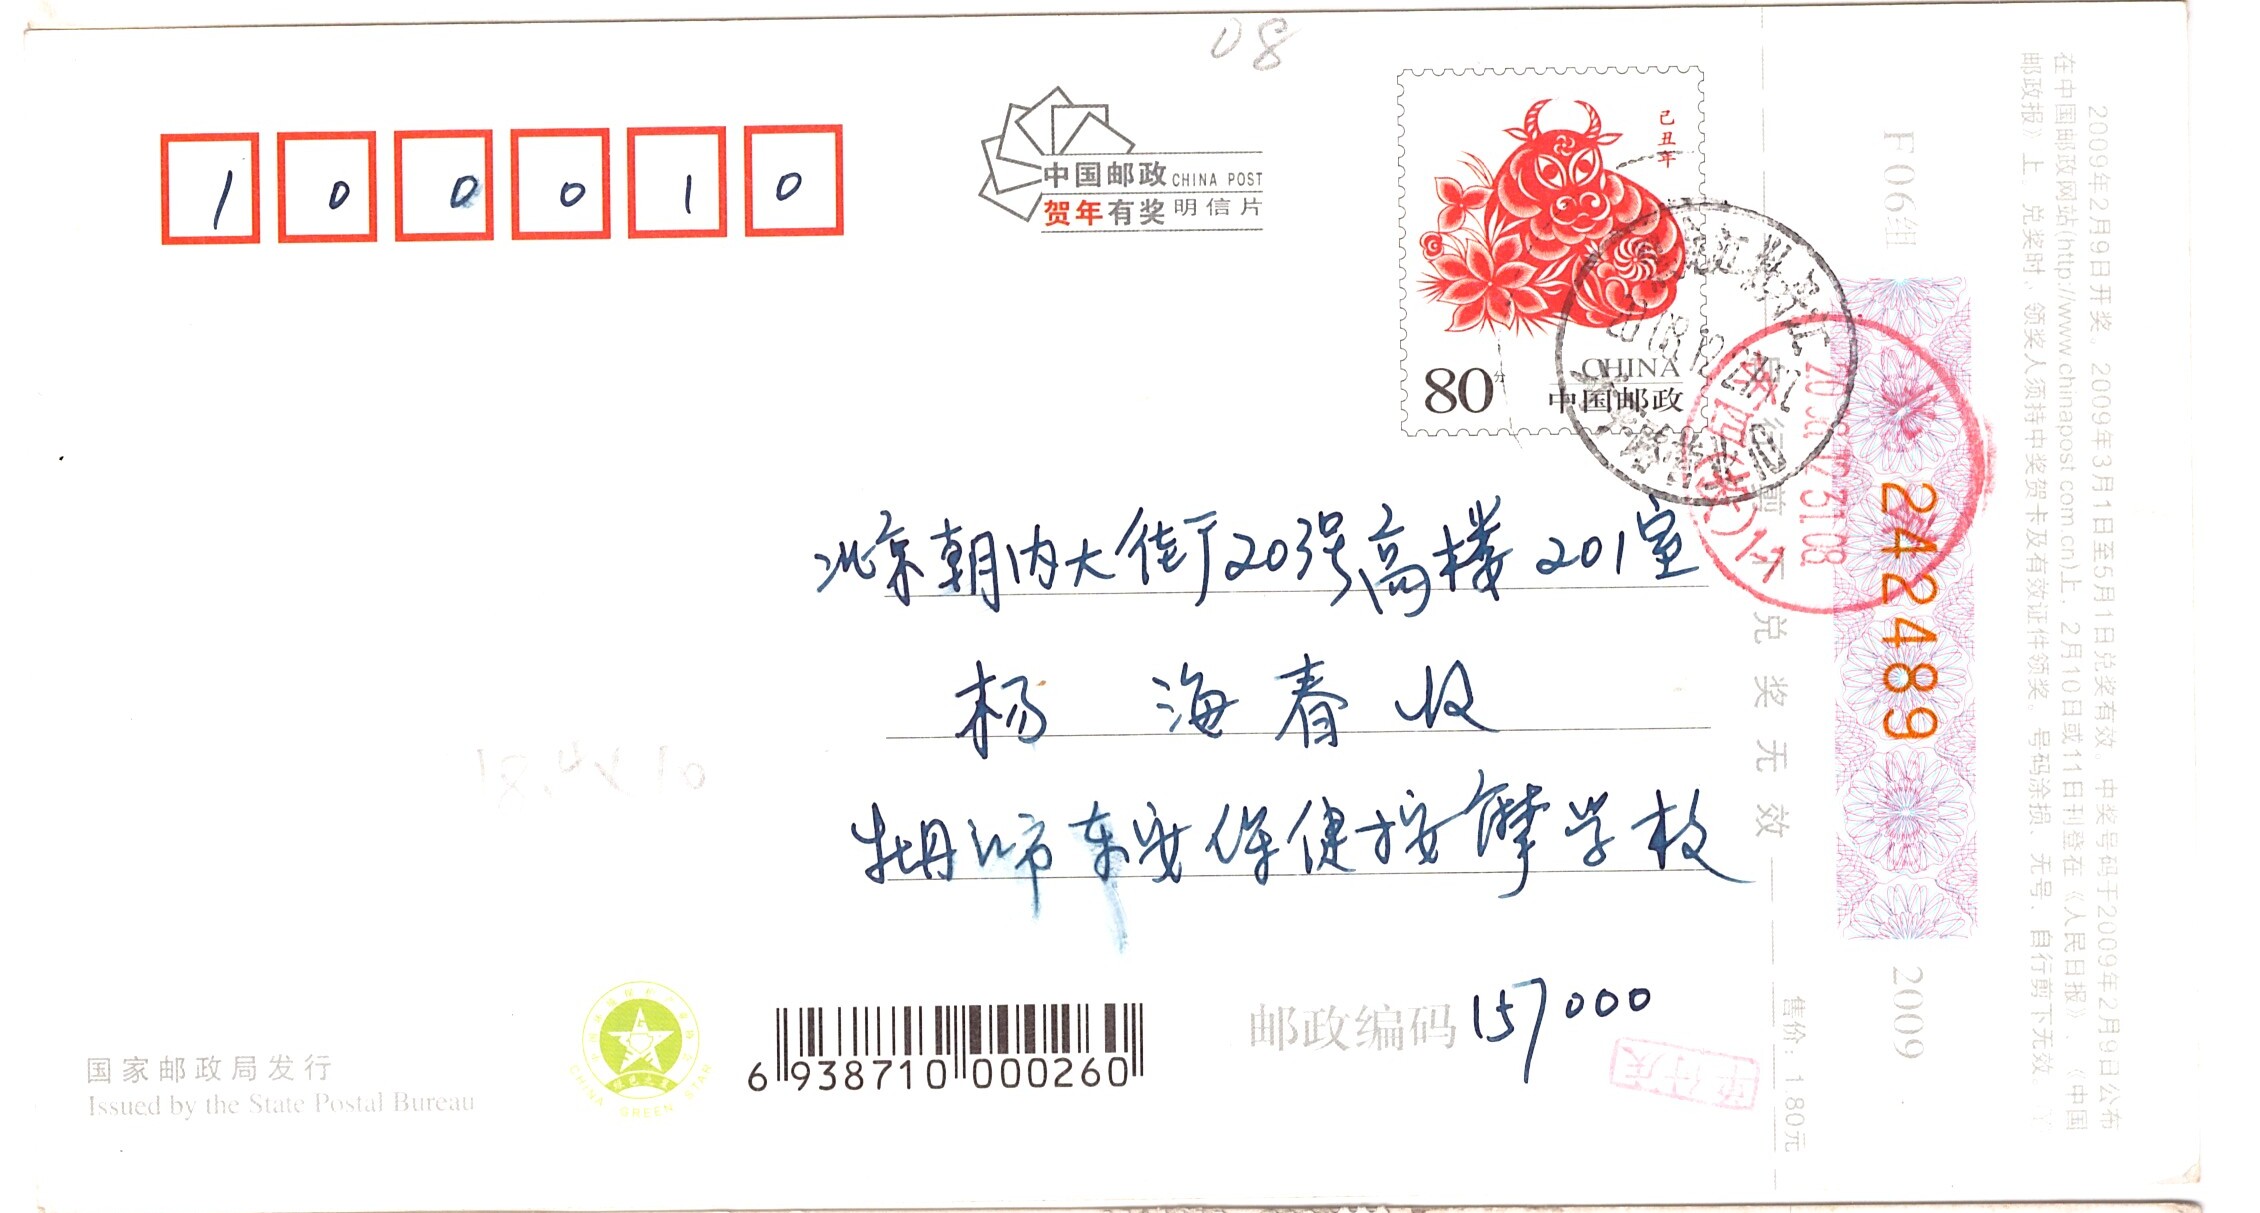 08
1 0 0 0 1 0
中国邮政 CHINA POST
贺年有奖 明信片
己丑年
80分
CHINA
中国邮政
北京朝内大街203号高楼201室
杨 海春收
牡丹江市东安保健按摩学校
邮政编码 157000
国家邮政局发行
Issued by the State Postal Bureau
CHINA GREEN STAR
6 938710 000260
兑奖无效
售价：1.80元
F06组
242489
2009
2009年2月9日开奖。2009年3月1日至5月1日兑奖有效。中奖号码于2009年2月9日公布
在中国邮政网站(http://www.chinapost.com.cn)上，2月10日或11日刊登在《人民日报》、《中国
邮政报》上。兑奖时，领奖人须持中奖贺卡及有效证件领奖。号码涂损、无号、自行剪下无效。